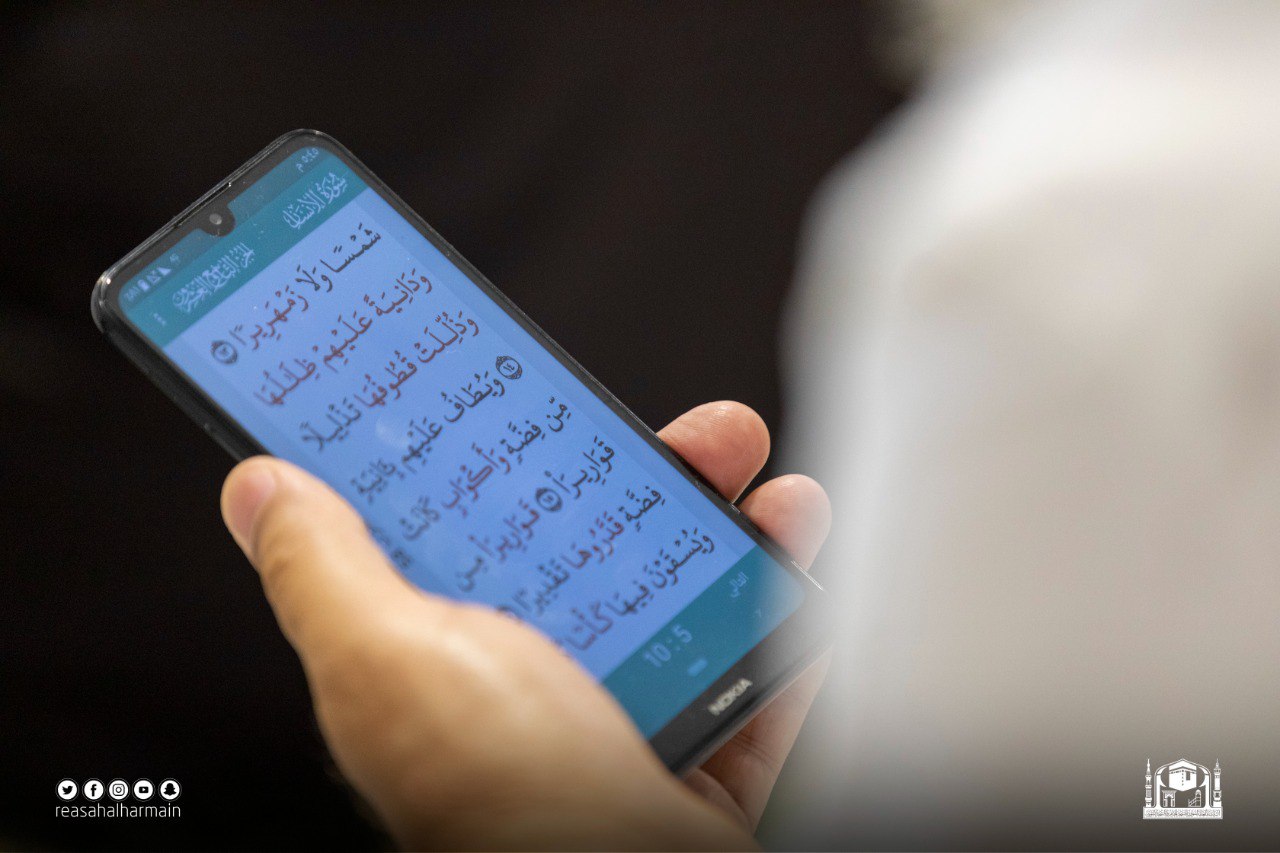 ٥:٤٥ م
سُورَةُ الإِنسَانِ
الجزء التاسع والعشرون
شَمْسًا وَلَا زَمْهَرِيرًا ١٣
وَدَانِيَةً عَلَيْهِمْ ظِلَالُهَا
وَذُلِّلَتْ قُطُوفُهَا تَذْلِيلًا
١٤ وَيُطَافُ عَلَيْهِم بِآنِيَةٍ
مِّن فِضَّةٍ وَأَكْوَابٍ كَانَتْ
قَوَارِيرَا۠ ١٥ قَوَارِيرَا۟ مِن
فِضَّةٍ قَدَّرُوهَا تَقْدِيرًا
وَيُسْقَوْنَ فِيهَا كَأْسًا
التالي
10 : 5
NOKIA
reasahalharmain